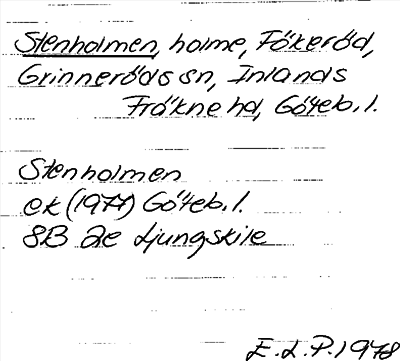 Stenholmen, holme, Fökeröd,
Grinneröds sn, Inlands
Fräkne hd, Göteb. l.
Stenholmen
ek (1977) Göteb. l.
8B 2e Ljungskile
E. L. P. 1978